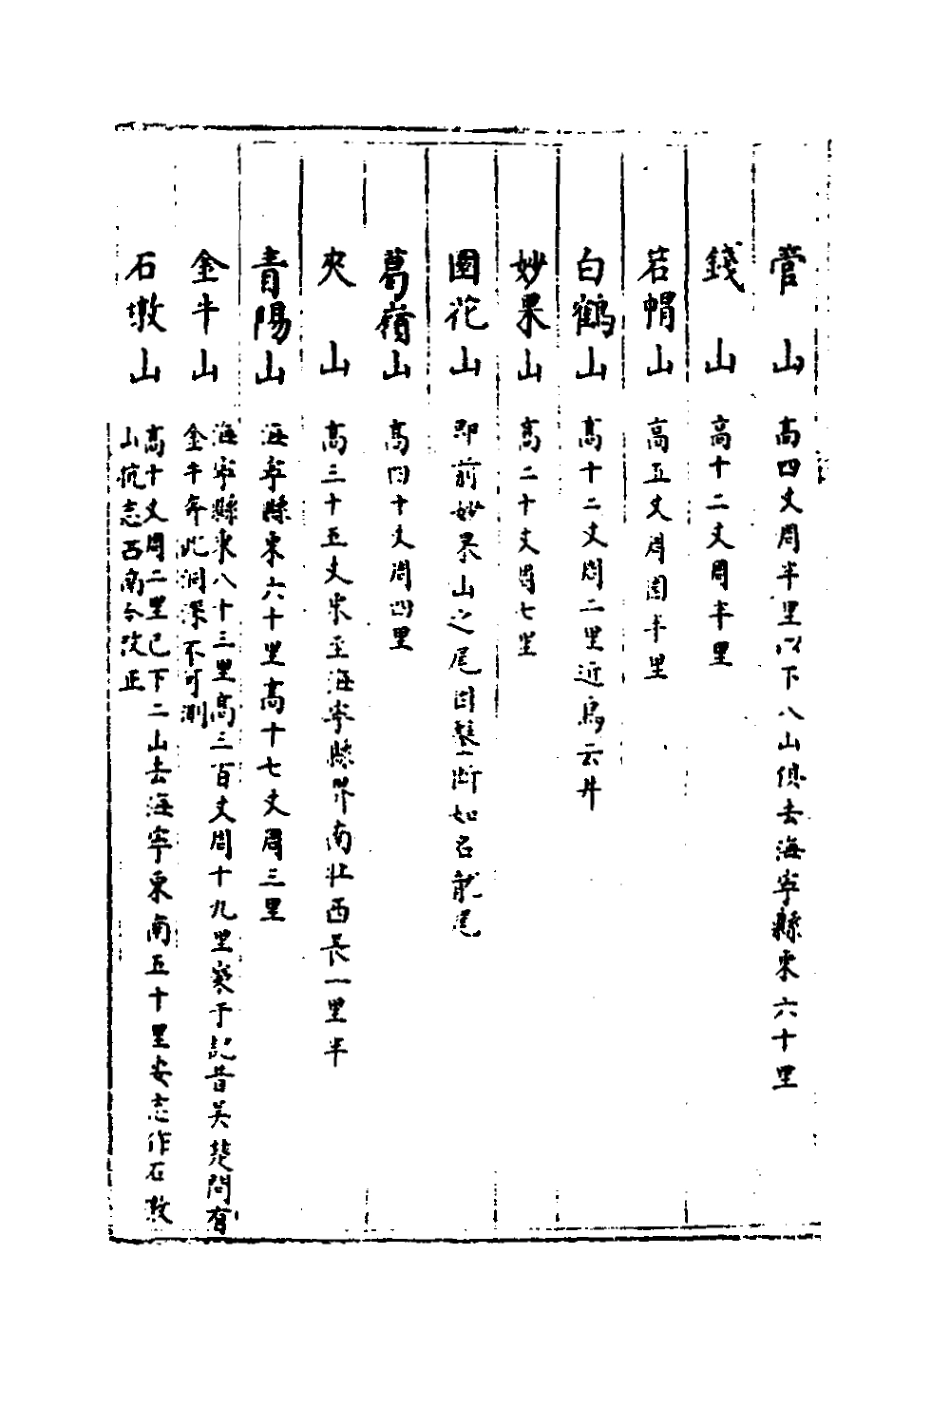 管山 高四丈周半里以下八山俱去海寧縣東六十里
錢山 高十二丈周半里
箬帽山 高五丈周圍半里
白鶴山 高十二丈周二里近烏云井
妙果山 高二十丈周七里
團花山 即前妙果山之尾因鑿斷如名龍尾
葛嶺山 高四十丈周四里
夾山 高三十五丈東至海寧縣界南北西長一里半
青陽山 海寧縣東六十里高十七丈周三里
金牛山 海寧縣東八十三里高三百丈周十九里
金牛奔此洞深不可測
石墩山 高十丈周二里已下二山去海寧東南五十里安志作石敦
山杭志西南今改正